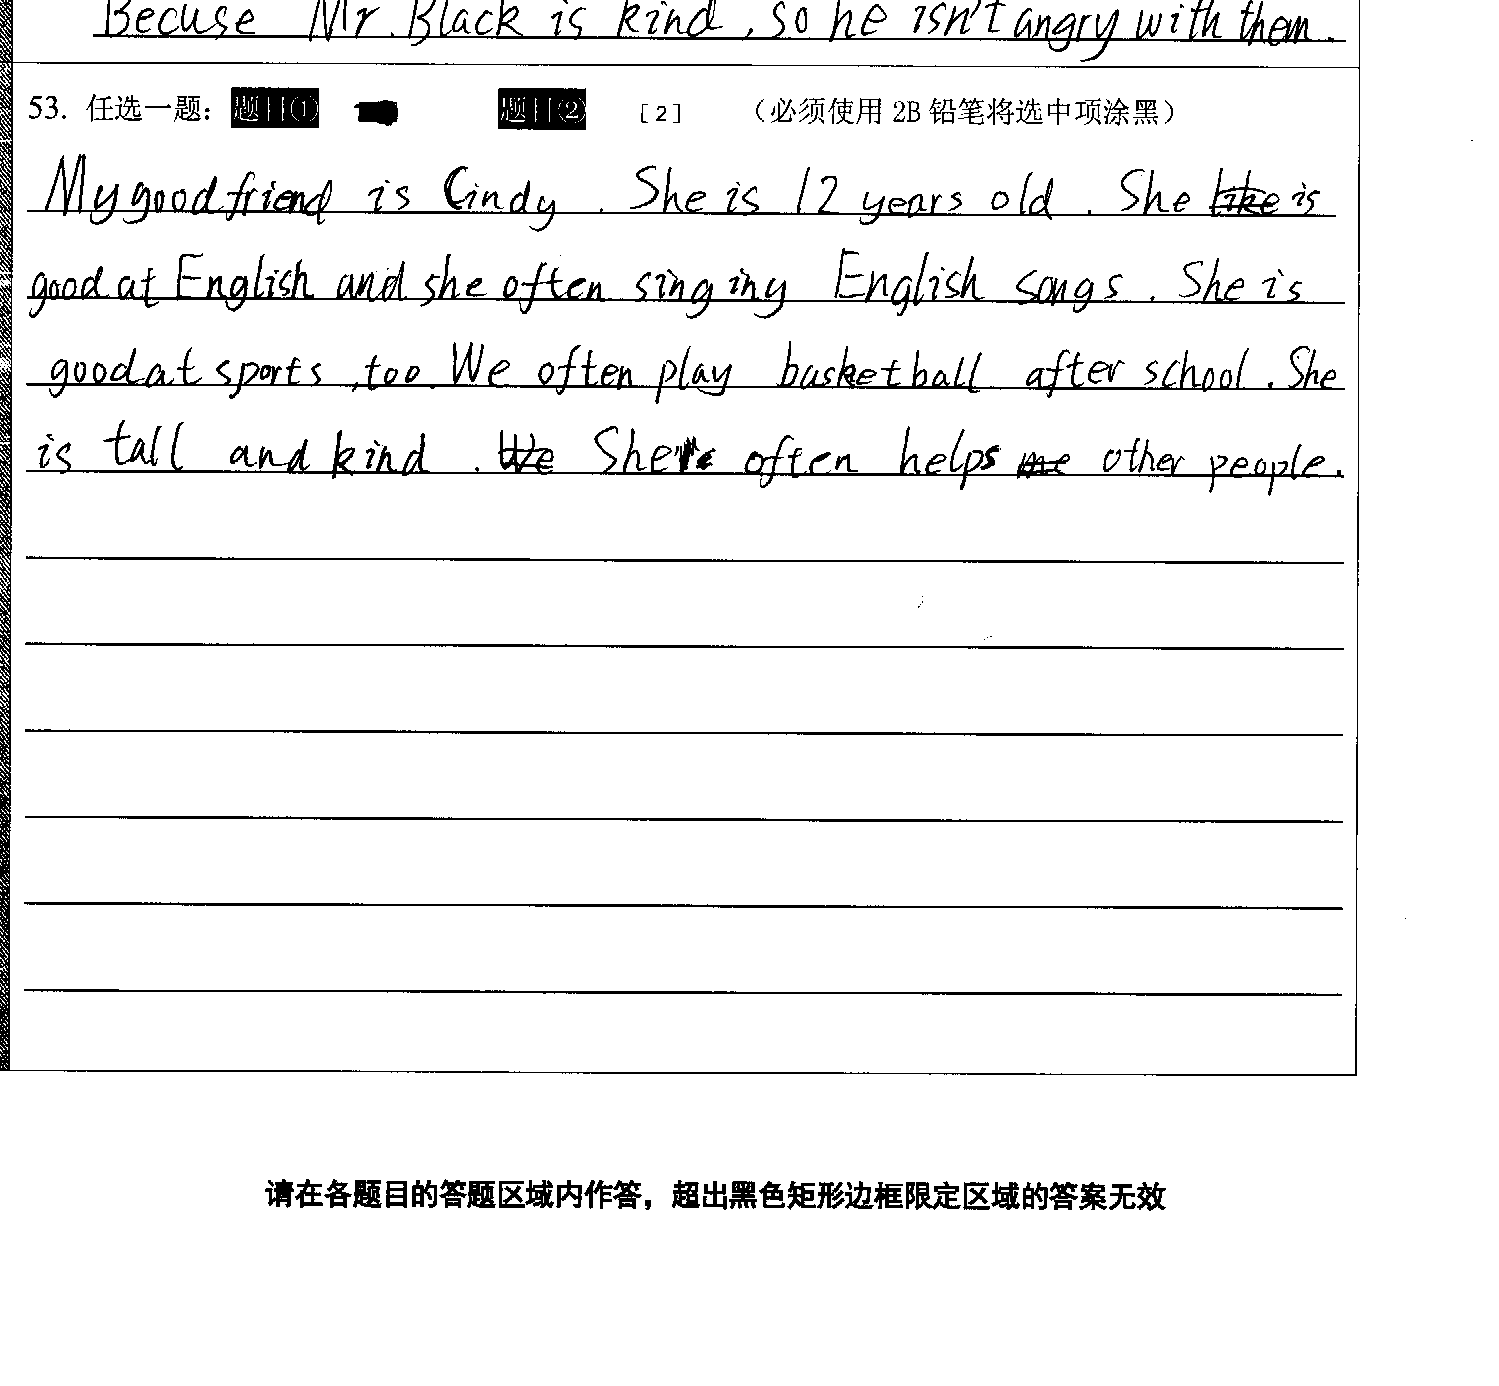 Becuse Mr. Black is kind, so he isn't angry with them.
53. 任选一题： 题目① 题目② [2] （必须使用 2B 铅笔将选中项涂黑）
My good friend is Cindy. She is 12 years old. She like is
good at English and she often singing English songs. She is
good at sports, too. We often play basketball after school. She
is tall and kind. We She often helps me other people.
请在各题目的答题区域内作答，超出黑色矩形边框限定区域的答案无效